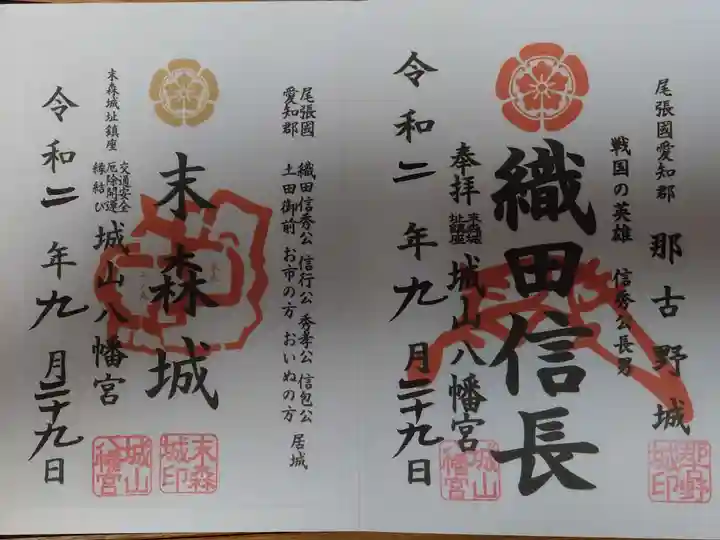 尾張國愛知郡 那古野城
戦国の英雄 信秀公長男
織田信長
奉拝 末森城址鎮座 城山八幡宮
令和二年九月二十九日
城印
城山八幡宮
尾張國愛知郡
織田信秀公 信行公 秀孝公 信包公
土田御前 お市の方 おいぬの方 居城
末森城
末森城址鎮座
交通安全
厄除開運
縁結び
城山八幡宮
令和二年九月二十九日
末森城印
城山八幡宮